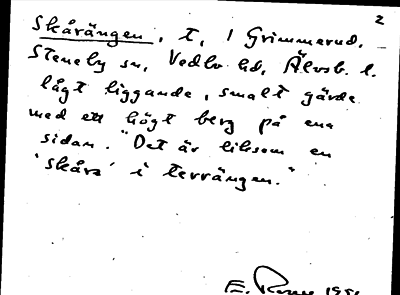 2
Skårängen, t, i Grimmerud,
Steneby sn, Vedbo hd, Älvsb. l.
lågt liggande, smalt gärde
med ett högt berg på ena
sidan. "Det är liksom en
'skåra' i terrängen."
E.